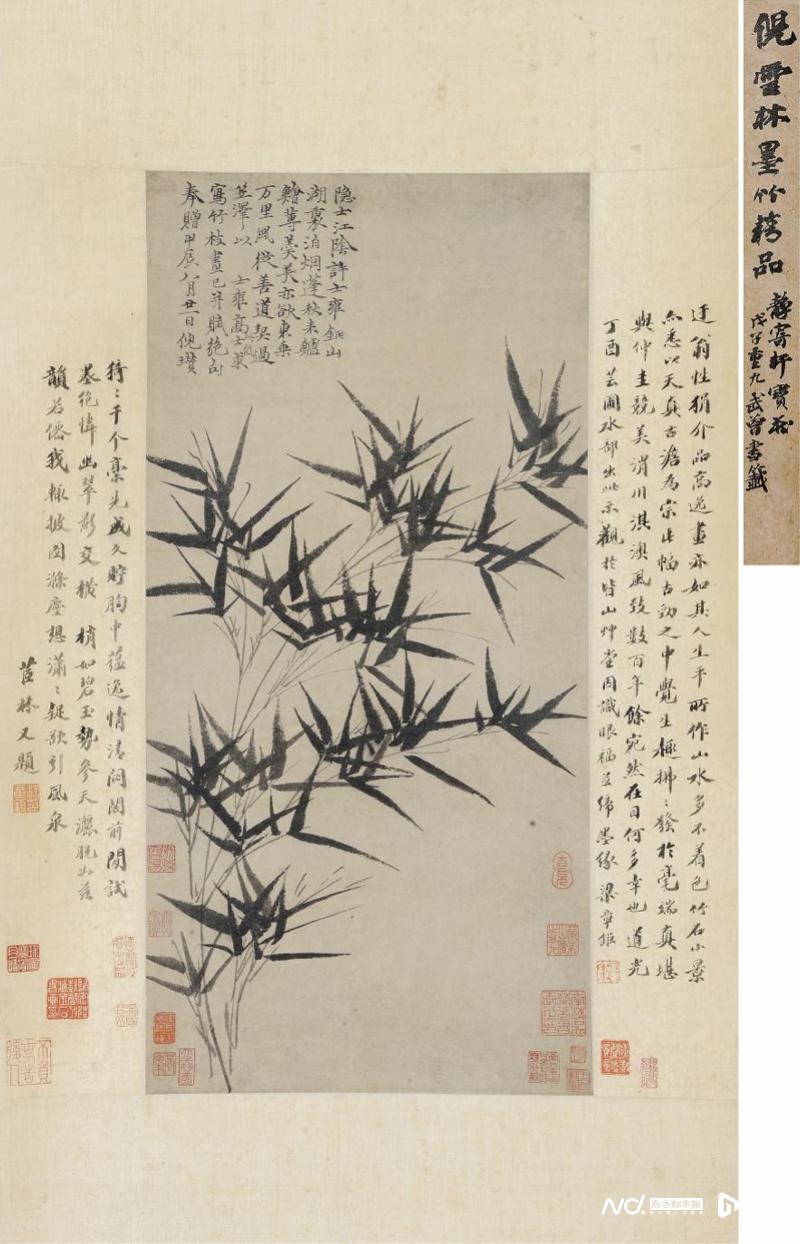 倪雲林墨竹精品
靜寄軒寶藏
戊子重九武曾書籤
隐士江陰許士雍銅山
湖裏泊烟蓬秋未鱸
鱠蓴羹美亦欲東乘
万里風從善道契過
笠澤以士雍高士索
寫竹枝畫已并賦絕句
奉贈甲辰八月廿一日倪瓚
迂翁性狷介品高逸畫亦如其人生平所作山水多不着色竹石小景
亦悉以天真古澹為宗此幅古勁之中覺生趣拂拂發於毫端真堪
與仲圭競美渭川淇澳風致數百年餘宛然在目何多幸也道光
丁酉芸圃水部出此示觀於皆山艸堂因識眼福並締墨緣梁章鉅
猗猗千个稾先成久貯胸中蘊逸情清閟閣前閒試
墨絕憐幽翠影交橫梢如碧玉勢參天瀟脫山
韻若僊我輒披圖滌塵想瀟瀟疑欲引風泉
茝林又題
N'D.南方都市報